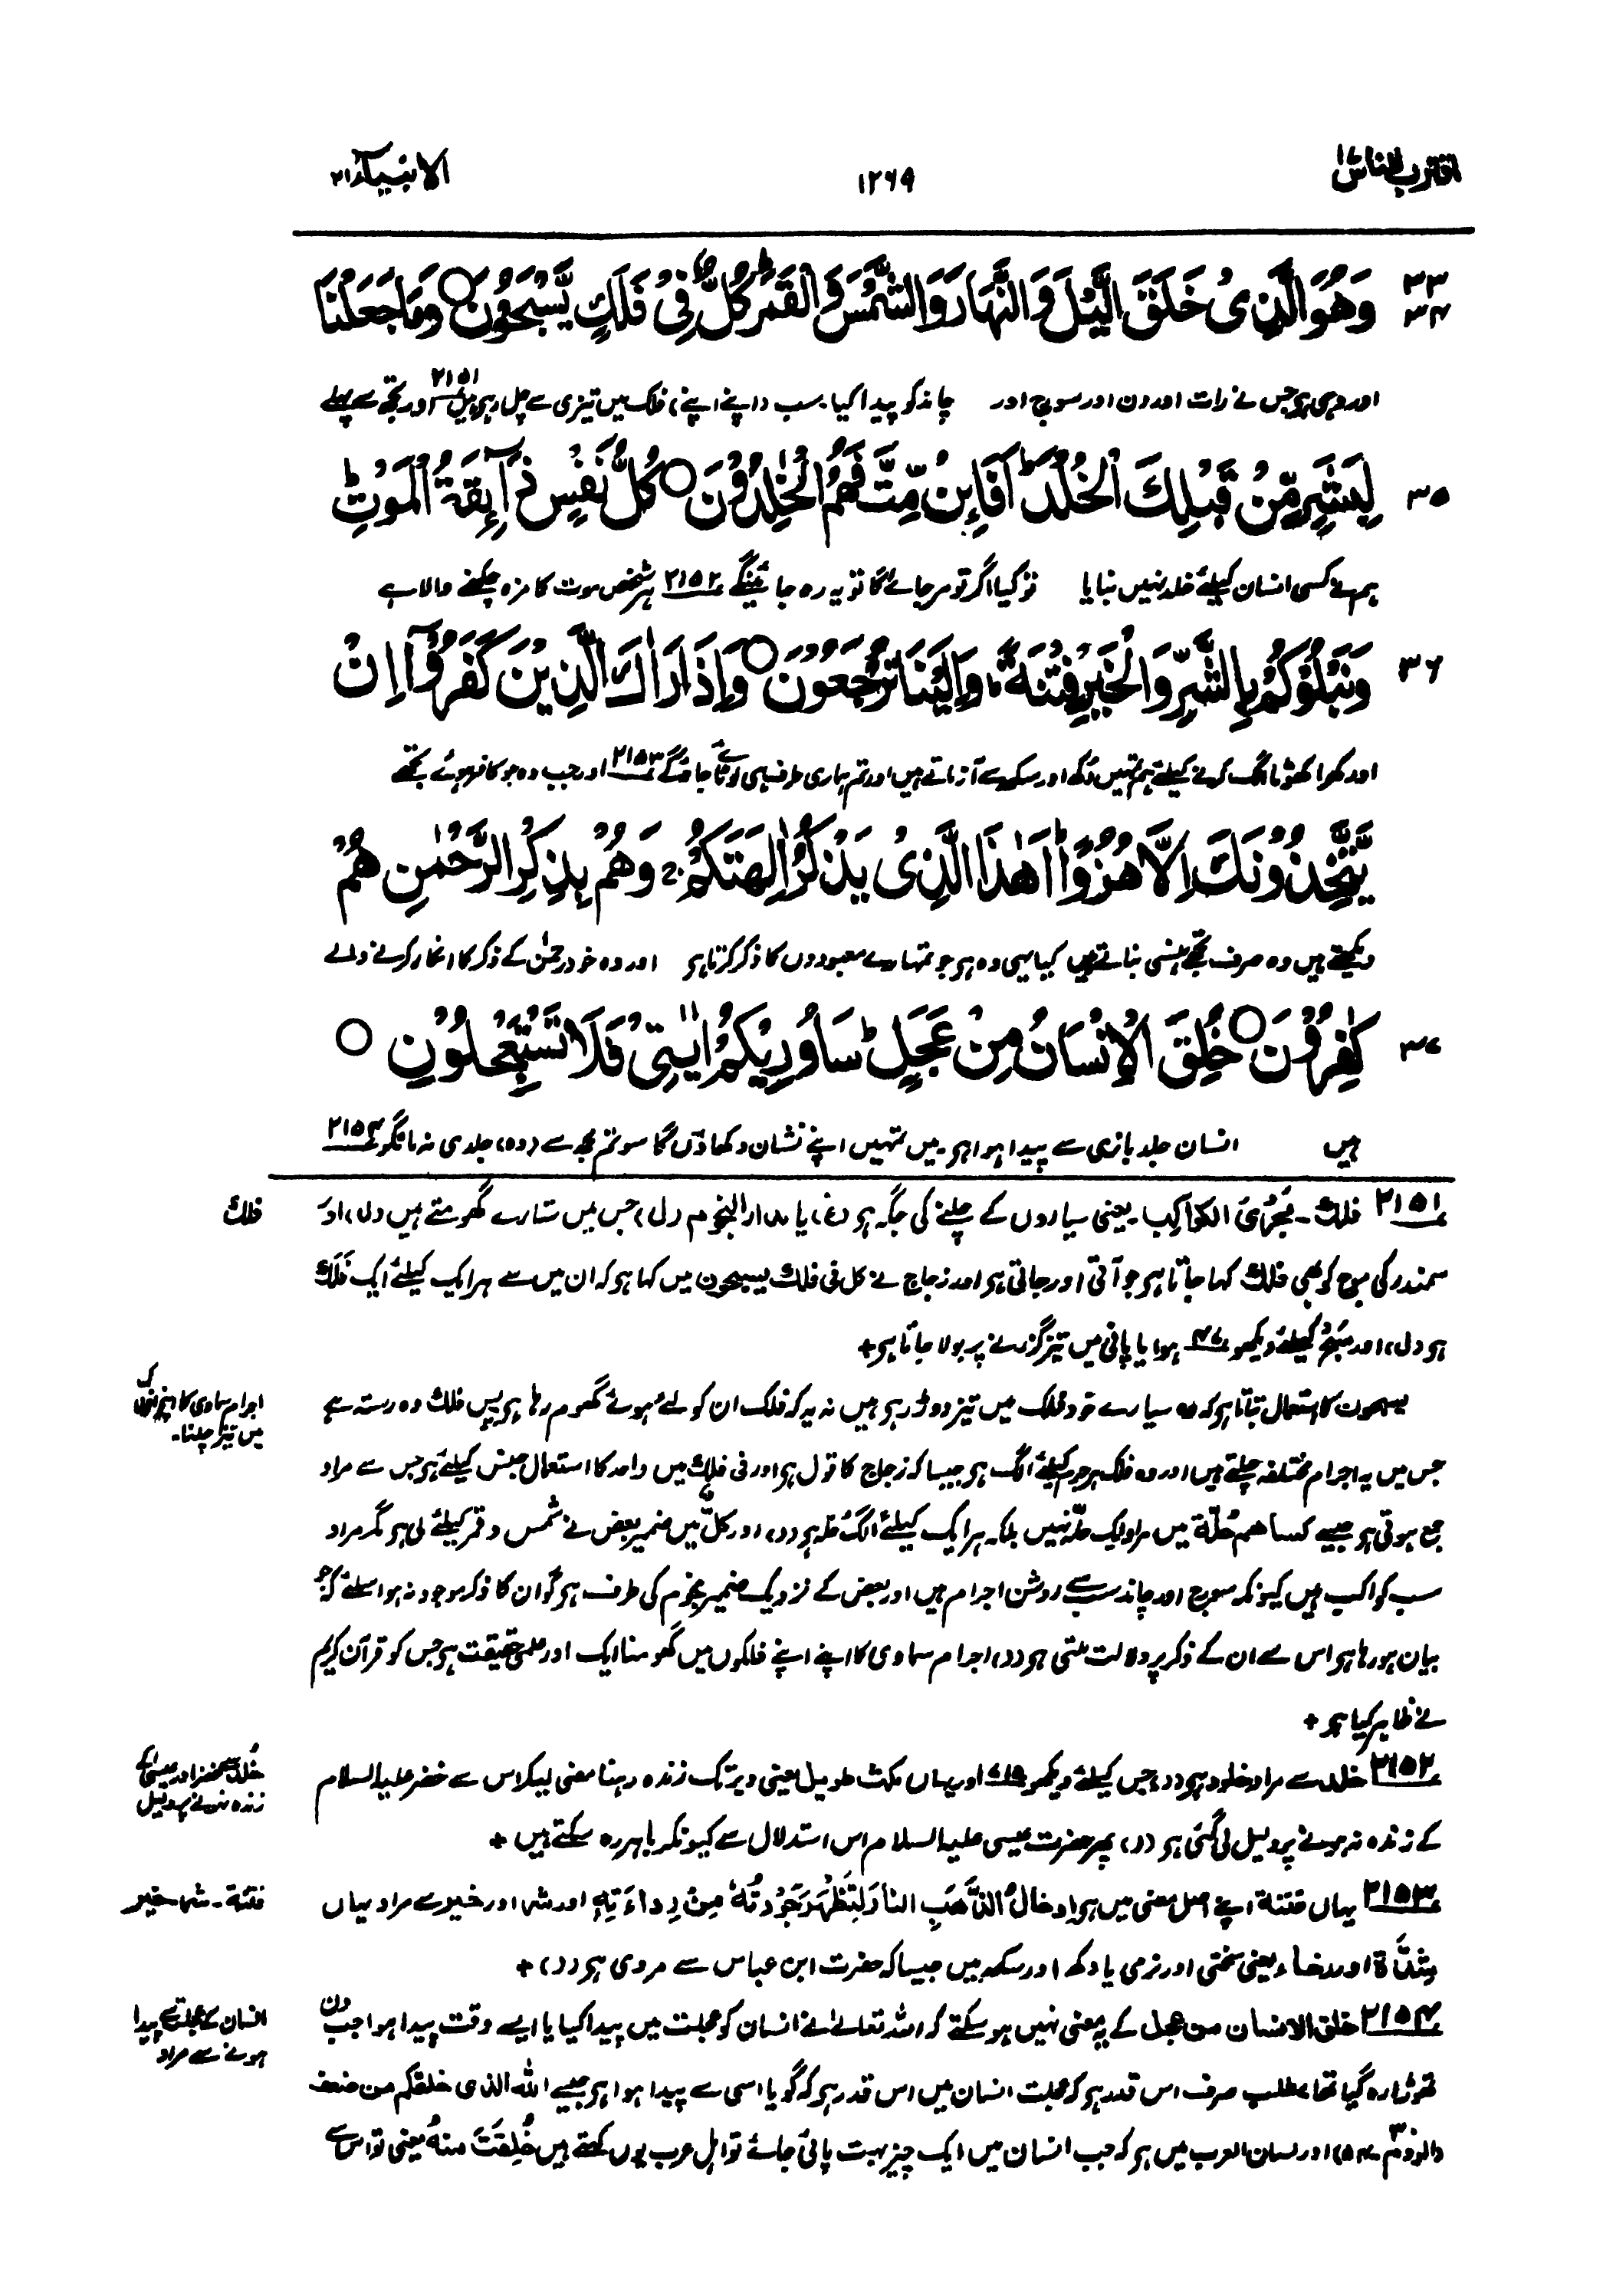 اقترب للناس ١٧
١٢٦٩
الانبیآء ٢١
٣٣
٣٤
وَهُوَ الَّذِیْ خَلَقَ الَّیْلَ وَالنَّهَارَ وَالشَّمْسَ وَالْقَمَرَؕ كُلٌّ فِیْ فَلَكٍ یَّسْبَحُوْنَ ○ وَمَا جَعَلْنَا
اور وہی ہر جس نے رات اور دن اور سورج اور چاند کو پیدا کیا۔ سب (اپنے اپنے) فلک میں تیزی سے چل رہے ہیں ٢١٥١ اور تجھ سے پہلے
٣٥
لِبَشَرٍ مِّنْ قَبْلِكَ الْخُلْدَؕ اَفَا۠ئِنْ مِّتَّ فَهُمُ الْخٰلِدُوْنَ ○ كُلُّ نَفْسٍ ذَآئِقَةُ الْمَوْتِؕ
ہم نے کسی انسان کیلئے خلد نہیں بنایا تو کیا اگر تو مر جائے گا تو یہ رہ جائینگے ٢١٥٢ ہر شخص موت کا مزہ چکھنے والا ہے
٣٦
وَنَبْلُوْكُمْ بِالشَّرِّ وَالْخَیْرِ فِتْنَةًؕ وَاِلَیْنَا تُرْجَعُوْنَ ○ وَاِذَا رَاٰكَ الَّذِیْنَ كَفَرُوْۤا اِنْ
اور کھرا کھوٹا الگ کرنے کیلئے ہم تمہیں دُکھ اور سکھ سے آزماتے ہیں اور تم ہماری طرف ہی لوٹائے جاؤ گے ٢١٥٣ اور جب وہ جو کافر ہوئے تجھے
یَّتَّخِذُوْنَكَ اِلَّا هُزُوًاؕ اَهٰذَا الَّذِیْ یَذْكُرُ اٰلِهَتَكُمْۚ وَهُمْ بِذِكْرِ الرَّحْمٰنِ هُمْ
دیکھتے ہیں وہ صرف تجھے ہنسی بناتے ہیں کیا یہی وہ ہر جو تمہارے معبودوں کا ذکر کرتا ہر اور وہ خود رحمٰن کے ذکر کا انکار کرنے والے
٣٧
كٰفِرُوْنَ ○ خُلِقَ الْاِنْسَانُ مِنْ عَجَلٍؕ سَاُورِیْكُمْ اٰیٰتِیْ فَلَا تَسْتَعْجِلُوْنِ ○
ہیں انسان جلد بازی سے پیدا ہوا ہر۔ میں تمہیں اپنے نشان دکھاؤں گا سو تم مجھ سے (وہ) جلدی نہ مانگو ٢١٥٤
٢١٥١ فلك۔ مَجْرَی الکواکب۔ یعنی سیاروں کے چلنے کی جگہ ہر (غ) یا مدار النجوم (ل) جس میں ستارے گھومتے ہیں (ل) اور
فلك
سمندر کی موج کو بھی فلك کہا جاتا ہر جو آتی اور جاتی ہر اور زجاج نے کل فی فلك یسبحون میں کہا ہر کہ ان میں سے ہر ایک کیلئے ایک فَلَك
ہر (ل) اور سَبْح کیلئے دیکھو ٤٧ ہوا یا پانی میں تیز گزرنے پر بولا جاتا ہر +
یسبحون کا استعمال بتاتا ہر کہ وہ سیارے خود فلک میں تیز دوڑ رہے ہیں نہ یہ کہ فلک ان کو لئے ہوئے گھوم رہا ہر پس فلك وہ رستہ ہے
اجرام سماوی کا اپنے فلکوں
میں تیز چلنا۔
جس میں یہ اجرام مختلفہ چلتے ہیں اور وہ فلک ہر جرم کیلئے الگ ہر جیسا کہ زجاج کا قول ہر اور فی فلك میں واحد کا استعمال جنس کیلئے ہر جس سے مراد
جمع ہوتی ہر جیسے کساھم حُلّة میں مراد ایک حلّہ نہیں بلکہ ہر ایک کیلئے الگ حلہ ہر (ر) اور كلٌّ میں ضمیر بعض نے شمس و قمر کیلئے لی ہر مگر مراد
سب کواکب ہیں کیونکہ سورج اور چاند سب سے روشن اجرام ہیں اور بعض کے نزدیک ضمیر نجوم کی طرف ہر گو ان کا ذکر موجود نہ ہو اسلئے کہ جو
بیان ہو رہا ہر اس سے ان کے ذکر پر دلالت ملتی ہر (ر) اجرام سماوی کا اپنے اپنے فلکوں میں گھومنا ایک اور علمی حقیقت ہر جس کو قرآن کریم
نے ظاہر کیا ہر +
٢١٥٢ خلد سے مراد خلود ہر (ر) جس کیلئے دیکھو اور یہاں مکث طویل یعنی دیر تک زندہ رہنا معنی لیکر اس سے خضر علیہ السلام
خُلد سے خضر اور عیسیٰ کے
زندہ نہ ہونے پر دلیل
کے زندہ نہ ہونے پر دلیل لی گئی ہر (ر) پھر حضرت عیسیٰ علیہ السلام اس استدلال سے کیونکر باہر رہ سکتے ہیں +
٢١٥٣ یہاں فتنة اپنے اصل معنی میں ہر اِدخالُ الذَّهَبِ النارَ لِتَظْهَرَ جَوْدَتُهٗ مِنْ رِداءَتِهٖ اور شر اور خیر سے مراد یہاں
فتنة۔ شر۔ خیر
شِدَّة اور رخاء یعنی سختی اور نرمی یا دکھ اور سکھ ہیں جیسا کہ حضرت ابن عباس سے مروی ہر (ر) +
٢١٥٤ خلق الانسان من عجل کے یہ معنی نہیں ہو سکتے کہ اللہ تعالےٰ نے انسان کو عجلت میں پیدا کیا یا ایسے وقت پیدا ہوا جب دن
انسان کے عجلت سے پیدا
ہونے سے مراد
تھوڑا رہ گیا تھا مطلب صرف اس قدر ہر کہ عجلت انسان میں اس قدر ہر کہ گویا اسی سے پیدا ہوا ہر جیسے الله الذی خلقکم من ضعف
(الروم ٣٠۔ ٥٤) اور لسان العرب میں ہر کہ جب انسان میں ایک چیز بہت پائی جائے تو اہل عرب یوں کہتے ہیں خُلِقْتَ منهُ یعنی تو اس سے